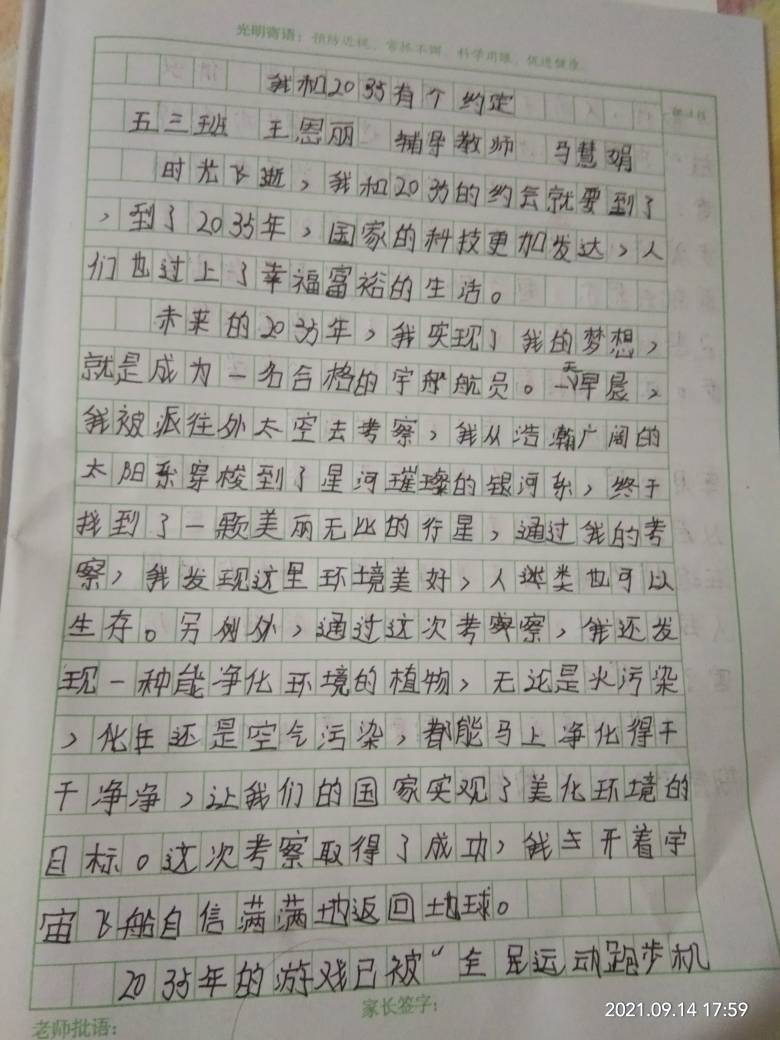 光明寄语：预防近视，常抓不懈，科学用眼，促进健康。
我和2035有个约定
五三班 王恩丽 辅导教师 马慧娟
时光飞逝，我和2035的约会就要到了
，到了2035年，国家的科技更加发达，人
们也过上了幸福富裕的生活。
未来的2035年，我实现了我的梦想，
就是成为一名合格的宇船航员。一天早晨，
我被派往外太空去考察，我从浩瀚广阔的
太阳系穿梭到了星河璀璨的银河系，终于
找到了一颗美丽无比的行星，通过我的考
察，我发现这里环境美好，人类也可以
生存。另外，通过这次考察，我还发
现一种能净化环境的植物，无论是水污染
，化还是空气污染，都能马上净化得干
干净净，让我们的国家实现了美化环境的
目标。这次考察取得了成功，我开着宇
宙飞船自信满满地返回地球。
2035年的游戏已被“全足运动跑步机
家长签字：
老师批语：
2021.09.14 17:59